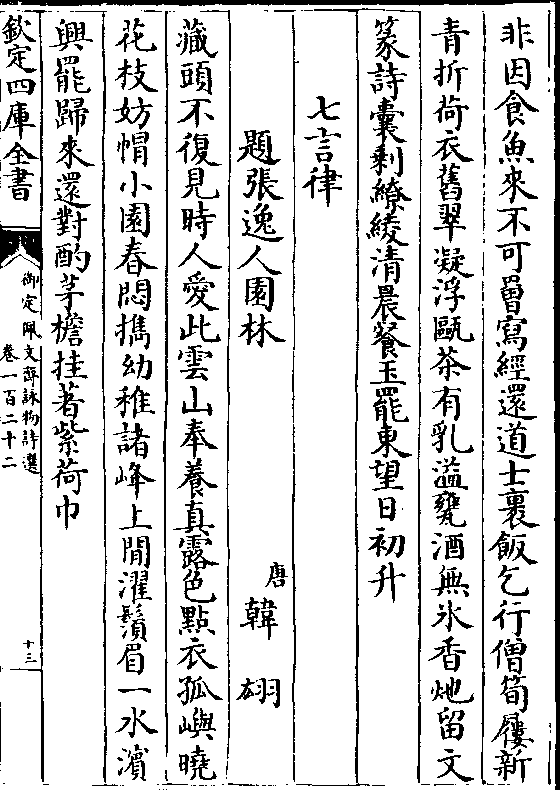 非因食魚來不可罾寫經還道士裹飯乞行僧筍屨新
青折荷衣舊翠凝浮甌茶有乳溢甕酒無氷香灺留文
篆詩囊剩繚綾清晨餐玉罷東望日初升
七言律
題張逸人園林
唐韓翃
藏頭不復見時人愛此雲山奉養真露色點衣孤嶼曉
花枝妨帽小園春悶攜幼稚諸峰上閒濯鬚眉一水濵
興罷歸來還對酌茅檐挂著紫荷巾
欽定四庫全書
御定佩文齋詠物詩選
卷一百二十二
十三